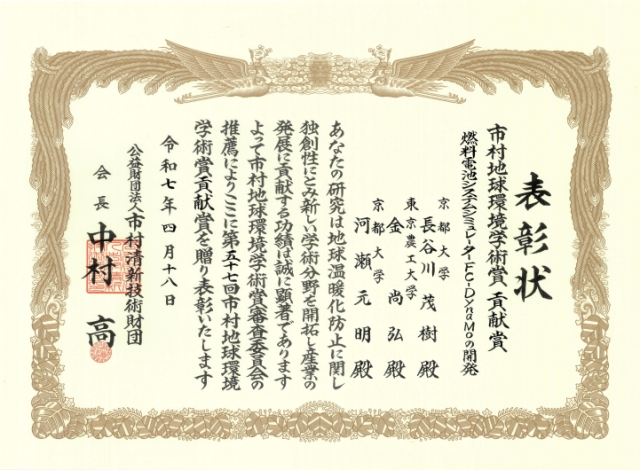 表彰状
市村地球環境学術賞 貢献賞
燃料電池システムシミュレーターFC-DyNaMoの開発
京都大学
長谷川 茂樹 殿
東京農工大学
金 尚弘 殿
京都大学
河瀬 元明 殿
あなたの研究は地球温暖化防止に関し
独創性にとみ新しい学術分野を開拓し産業の
発展に貢献する功績は誠に顕著であります
よって市村地球環境学術賞審査委員会の
推薦によりここに第五十七回市村地球環境
学術賞貢献賞を贈り表彰いたします
令和七年四月十八日
公益財団法人市村清新技術財団
会長 中村 高